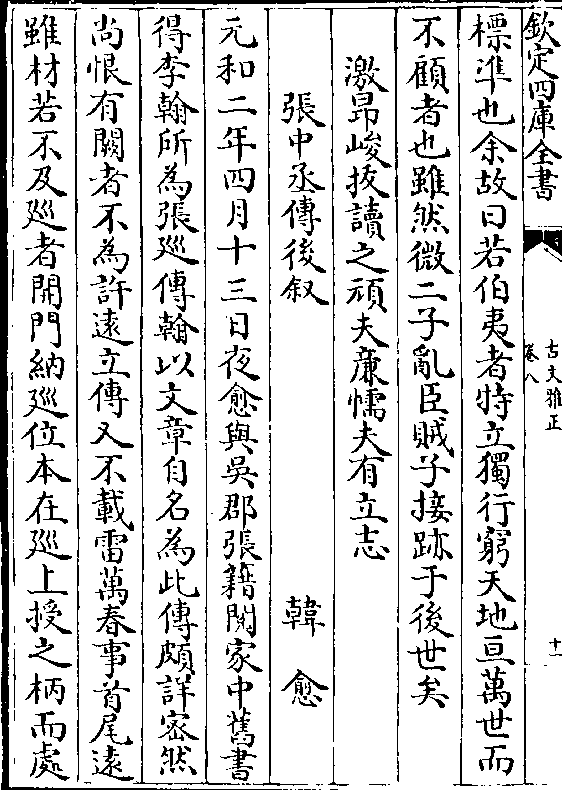 欽定四庫全書
古文雅正
卷八
十一
標準也余故曰若伯夷者特立獨行窮天地亘萬世而
不顧者也雖然微二子亂臣賊子接跡于後世矣
激昂峻拔讀之頑夫廉懦夫有立志
張中丞傳後叙
韓愈
元和二年四月十三日夜愈與吳郡張籍閱家中舊書
得李翰所為張廵傳翰以文章自名為此傳頗詳密然
尚恨有闕者不為許遠立傳又不載雷萬春事首尾遠
雖材若不及廵者開門納廵位本在廵上授之柄而處